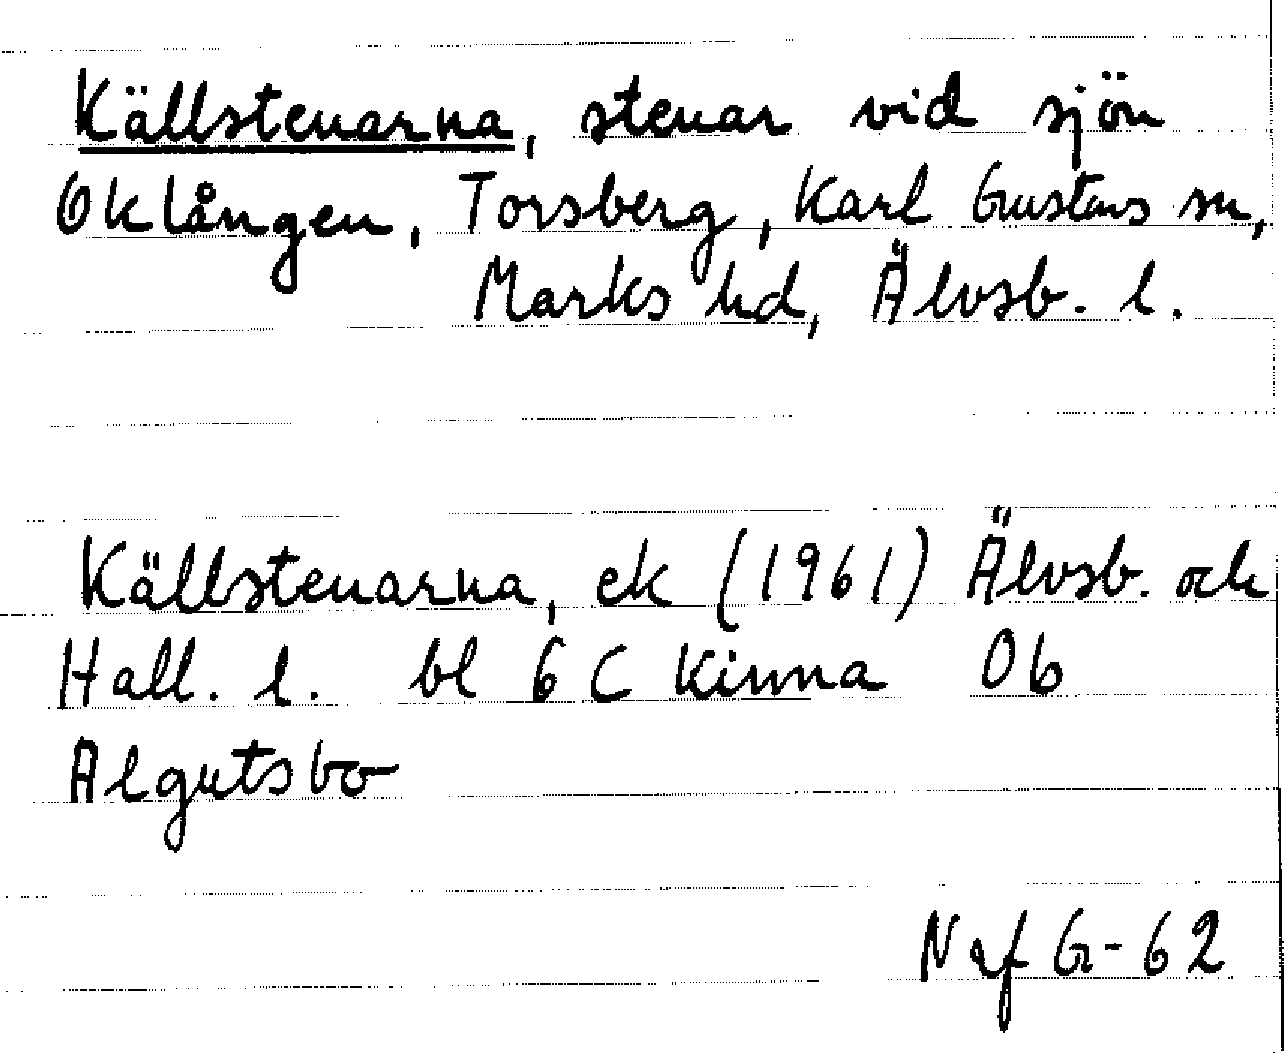 Källstenarna, stenar vid sjön
Oklången, Torsberg, Karl Gustavs sn,
Marks hd, Älvsb. l.
Källstenarna, ek (1961) Älvsb. och
Hall. l. bl 6 C Kinna Ob
Algutsbo
Naf G-62